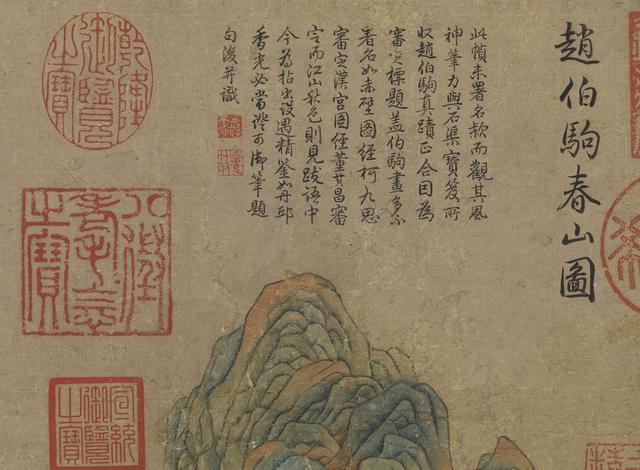 趙伯駒春山圖
此幀未署名款而觀其風
神筆力與石渠寶笈所
收趙伯駒真蹟正合因為
審定標題蓋伯駒畫多不
署名如赤壁圖經柯九思
審定漢宮圖經董其昌審
定而江山秋色則見跋語中
今為拈出設遇精鑒如丹邱
香光必當證可御筆題
句後并識
乾隆御覽之寶
八徵耄念之寶
宣統御覽之寶